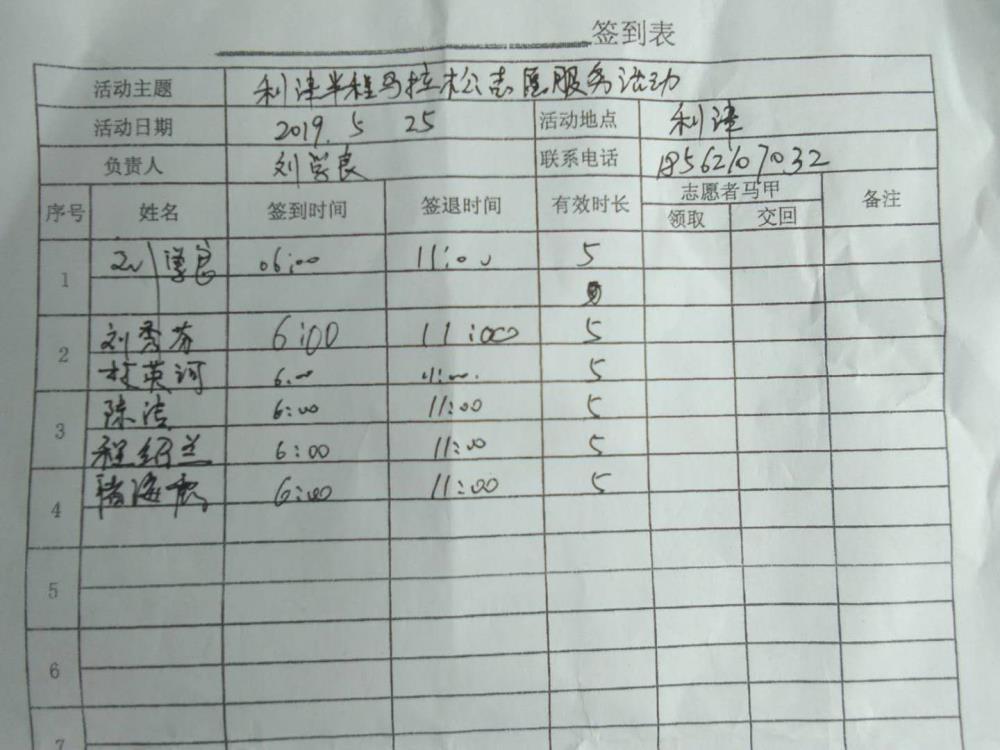 签到表
活动主题 利津半程马拉松志愿服务活动
活动日期 2019. 5 25 活动地点 利津
负责人 刘学良 联系电话 18562107032
序号 姓名 签到时间 签退时间 有效时长 志愿者马甲 备注
领取 交回
1 刘学良 06:00 11:00 5
2 刘秀芬 6:00 11:000 5
英 6:00 11:00 5
3 陈洁 6:00 11:00 5
程绍兰 6:00 11:00 5
4 海 6:00 11:00 5
5
6
7